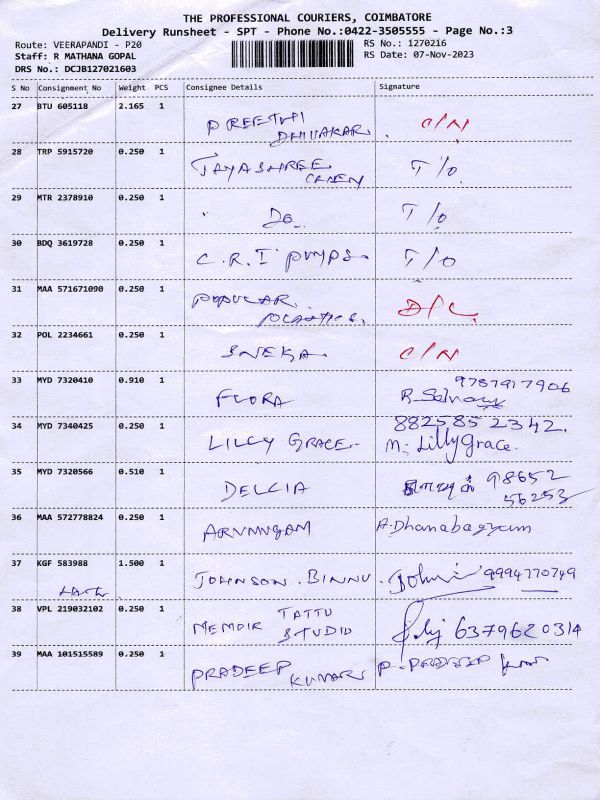 THE PROFESSIONAL COURIERS, COIMBATORE
Delivery Runsheet - SPT - Phone No.:0422-3505555 - Page No.:3
Route: VEERAPANDI - P20
RS No.: 1270216
Staff: R MATHANA GOPAL
RS Date: 07-Nov-2023
DRS No.: DCJB127021603
S No Consignment No Weight PCS Consignee Details Signature
27 BTU 605118 2.165 1 PREETHI
DHIVAKAR. C/N
28 TRP 5915720 0.250 1 JAYASHREE T/O
29 MTR 2378910 0.250 1 Do T/O
30 BDQ 3619728 0.250 1 C.R.I PUMPS T/O
31 MAA 571671090 0.250 1 POPULAR
PLASTICS. D/L
32 POL 2234661 0.250 1 SNEKA C/N
33 MYD 7320410 0.910 1 FLORA 9787917906
34 MYD 7340425 0.250 1 LILLY GRACE 8825852342.
M. Lillygrace.
35 MYD 7320566 0.510 1 DELCIA 98652
56253
36 MAA 572778824 0.250 1 ARUMUGAM A.Dhanabagyam
37 KGF 583988 1.500 1 JOHNSON.BINNU. 9994770749
38 VPL 219032102 0.250 1 MEMOIR TATTU
STUDIO 6379620314
39 MAA 101515589 0.250 1 PRADEEP
KUMAR P. PRADEEP